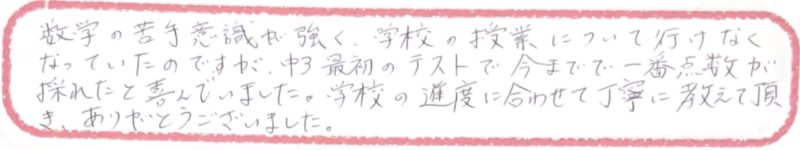 数学の苦手意識が強く、学校の授業について行けなく
なっていたのですが、中3最初のテストで今までで一番点数が
採れたと喜んでいました。学校の進度に合わせて丁寧に教えて頂
き、ありがとうございました。